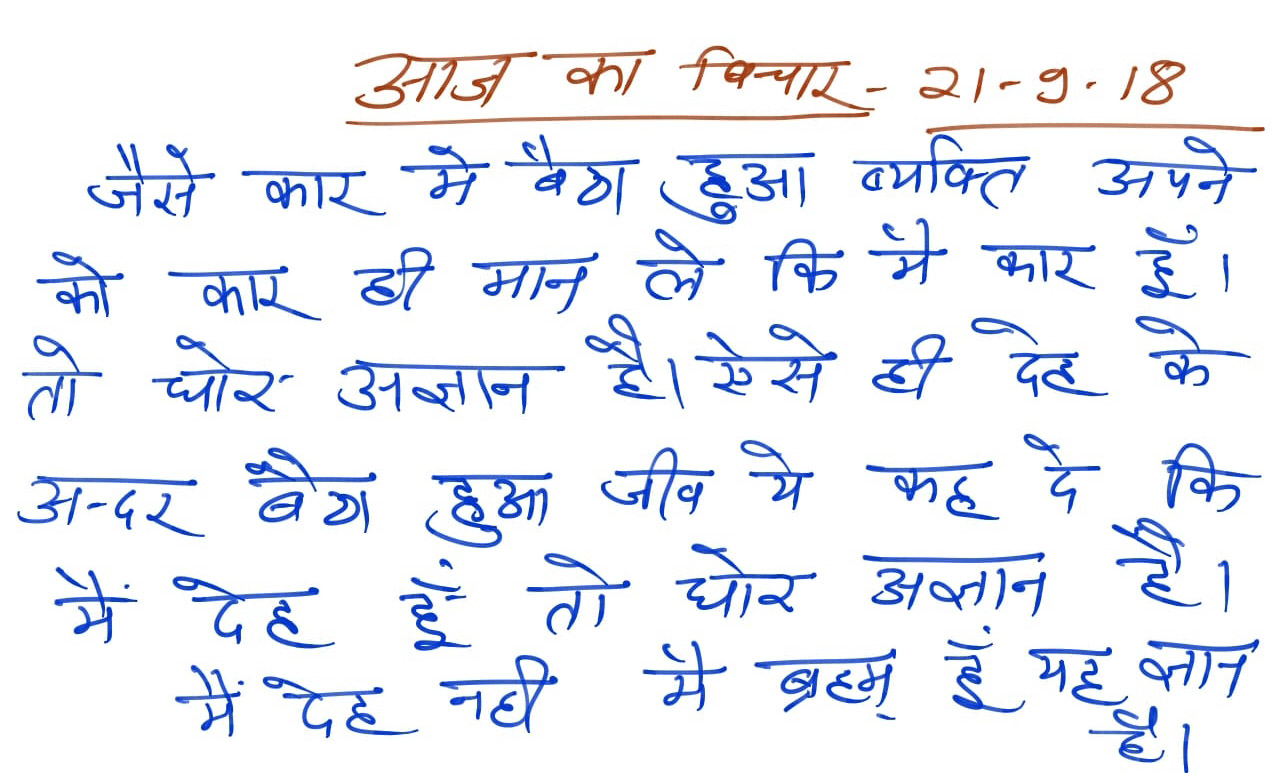 आज का विचार - 21-9-18
जैसे कार मे बैठा हुआ व्यक्ति अपने
को कार ही मान ले कि मैं कार हूँ।
तो घोर अज्ञान है। ऐसे ही देह के
अन्दर बैठा हुआ जीव ये कह दे कि
मैं देह हूँ तो घोर अज्ञान है।
मैं देह नही मैं ब्रहम् हूं यह ज्ञान
है।